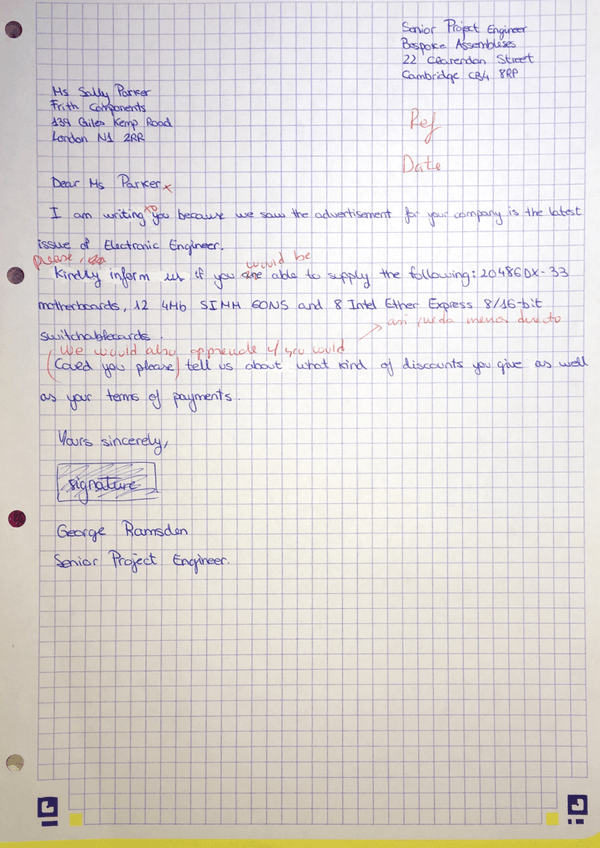 Senior Project Engineer
Bespoke Assemblies
22 Clearendon Street
Cambridge CB4 8RP
Ms Sally Parker
Frith Components
139 Giles Kemp Road
London N1 2RR
Ref
Date
Dear Ms Parker x
to
I am writing you because we saw the advertisement for your company is the latest
issue of Electronic Engineer.
please, would be
Kindly inform us if you are able to supply the following: 20486DX-33
motherboards, 12 4Mb SIMM 60NS and 8 Intel Ether Express 8/16-bit
switchablecards.
asi queda menos directo
We would also appreciate if you could
(Coued you please) tell us about what kind of discounts you give as well
as your terms of payments.
Yours sincerely,
signature
George Ramsden
Senior Project Engineer.